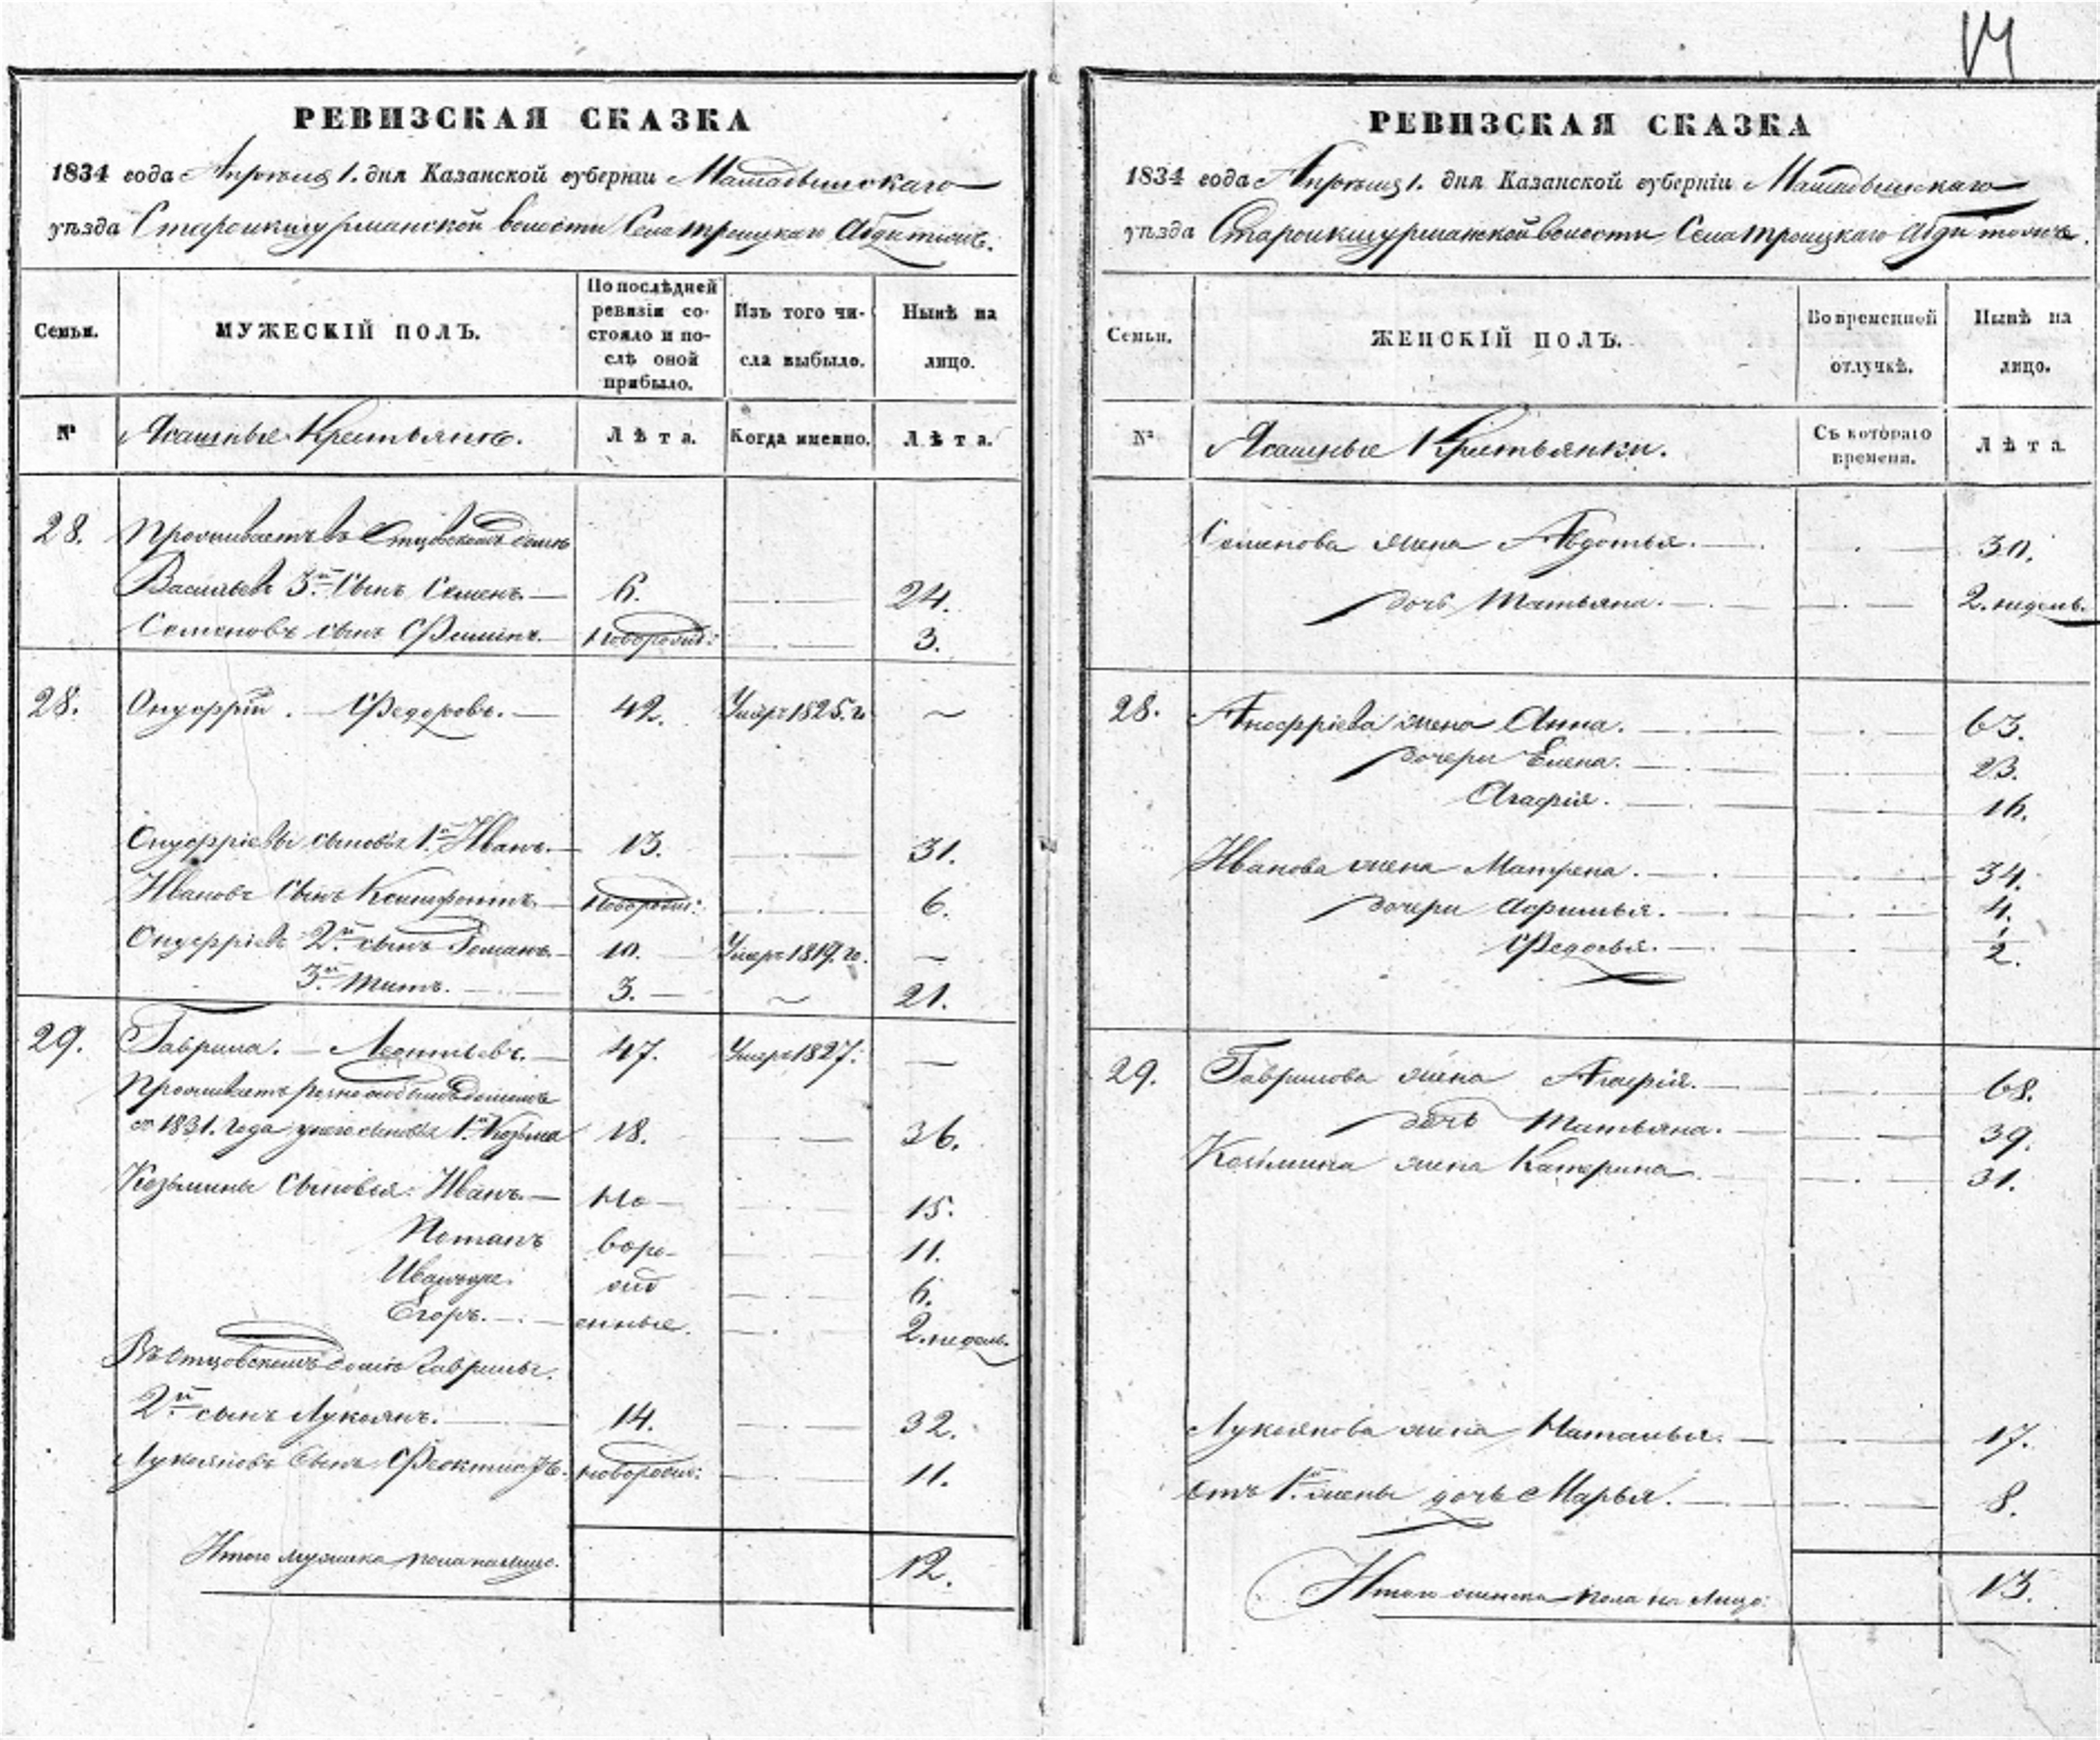 14
РЕВИЗСКАЯ СКАЗКА
1834 года Апрѣля 1. дня Казанской губерніи Мамадышскаго
уѣзда Старошигурманской волости Села троицкаго
Семьи.
МУЖЕСКІЙ ПОЛЪ.
По послѣдней
ревизіи со-
стояло и по-
слѣ оной
прибыло.
Изъ того чи-
сла выбыло.
Нынѣ на
лицо.
№
Ясашные Крестьяне.
Лѣта.
Когда именно.
Лѣта.
28. Проживаетъ въ Отцовскомъ домѣ
Васильевъ 3й Сынъ Семенъ. 6. 24.
Семеновъ сынъ Новорожд: 3.
28. Онуфрій. Федоровъ. 42. Умеръ 1825. г.
Онуфріевы сыновья 1й Иванъ. 13. 31.
Ивановъ Сынъ Ксенофонтъ. Новорожд: 6.
Онуфріевъ 2й сынъ Романъ. 10. Умеръ 1819. го.
3й Титъ. 3. 21.
29. Гаврила. Леонтьевъ. 47. Умеръ 1827:
Проживаетъ домомъ
съ 1831. года у него сыновья 1й Козьма 18. 36.
Козьмины Сыновья: Иванъ. Но- 15.
Потапъ воро- 11.
жд 6.
Егоръ. енные. 2. недель.
Въ Отцовскомъ домѣ Гаврилы.
2й сынъ Лукоянъ. 14. 32.
Лукояновъ Сынъ Феоктистъ. новорожд: 11.
Итого мужска пола на лицо. 12.
РЕВИЗСКАЯ СКАЗКА
1834 года Апрѣля 1. дня Казанской губерніи Мамадышскаго
уѣзда Старошигурманской волости Села троицкаго
Семьи.
ЖЕНСКІЙ ПОЛЪ.
Во временной
отлучкѣ.
Нынѣ на
лицо.
№
Ясашные Крестьянки.
Съ котораго
времени.
Лѣта
Семенова жена Авдотья. 30.
дочь Татьяна. 2. недель.
28. Анофріева жена Анна. 63.
дочери Елена. 23.
Агафія. 16.
Иванова жена Матрена. 34.
дочери Афимья. 4.
Федосья. 1/2.
29. Гаврилова жена Агафія. 68.
дочь Татьяна. 39.
Козьмина жена Катерина 31.
Лукоянова жена Наталья. 17.
отъ 1й жены дочь Марья. 8.
Итого женска пола на лицо: 13.